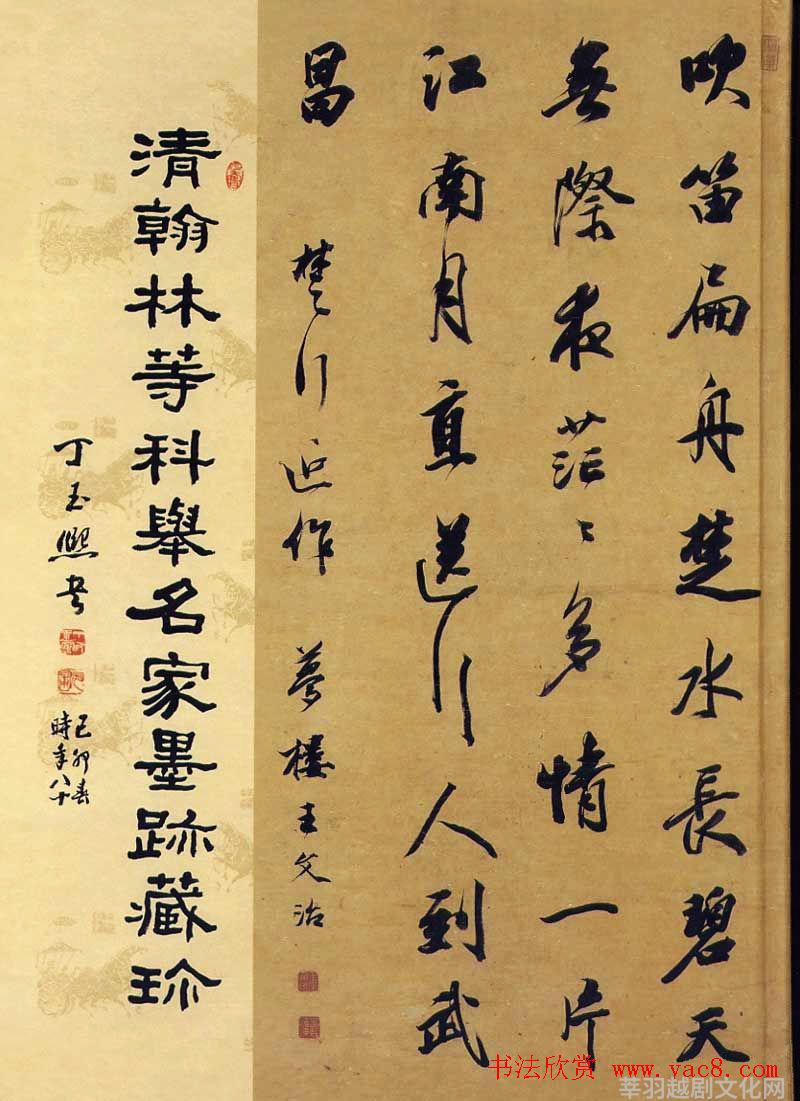 吹笛扁舟楚水長碧天
無際夜茫〻多情一片
江南月直送行人到武
昌
楚行近作
夢樓王文治
清翰林等科舉名家墨跡藏珍
丁玉熙書
己卯春
時年八十
书法欣赏 www.yac8.com
莘羽越剧文化网